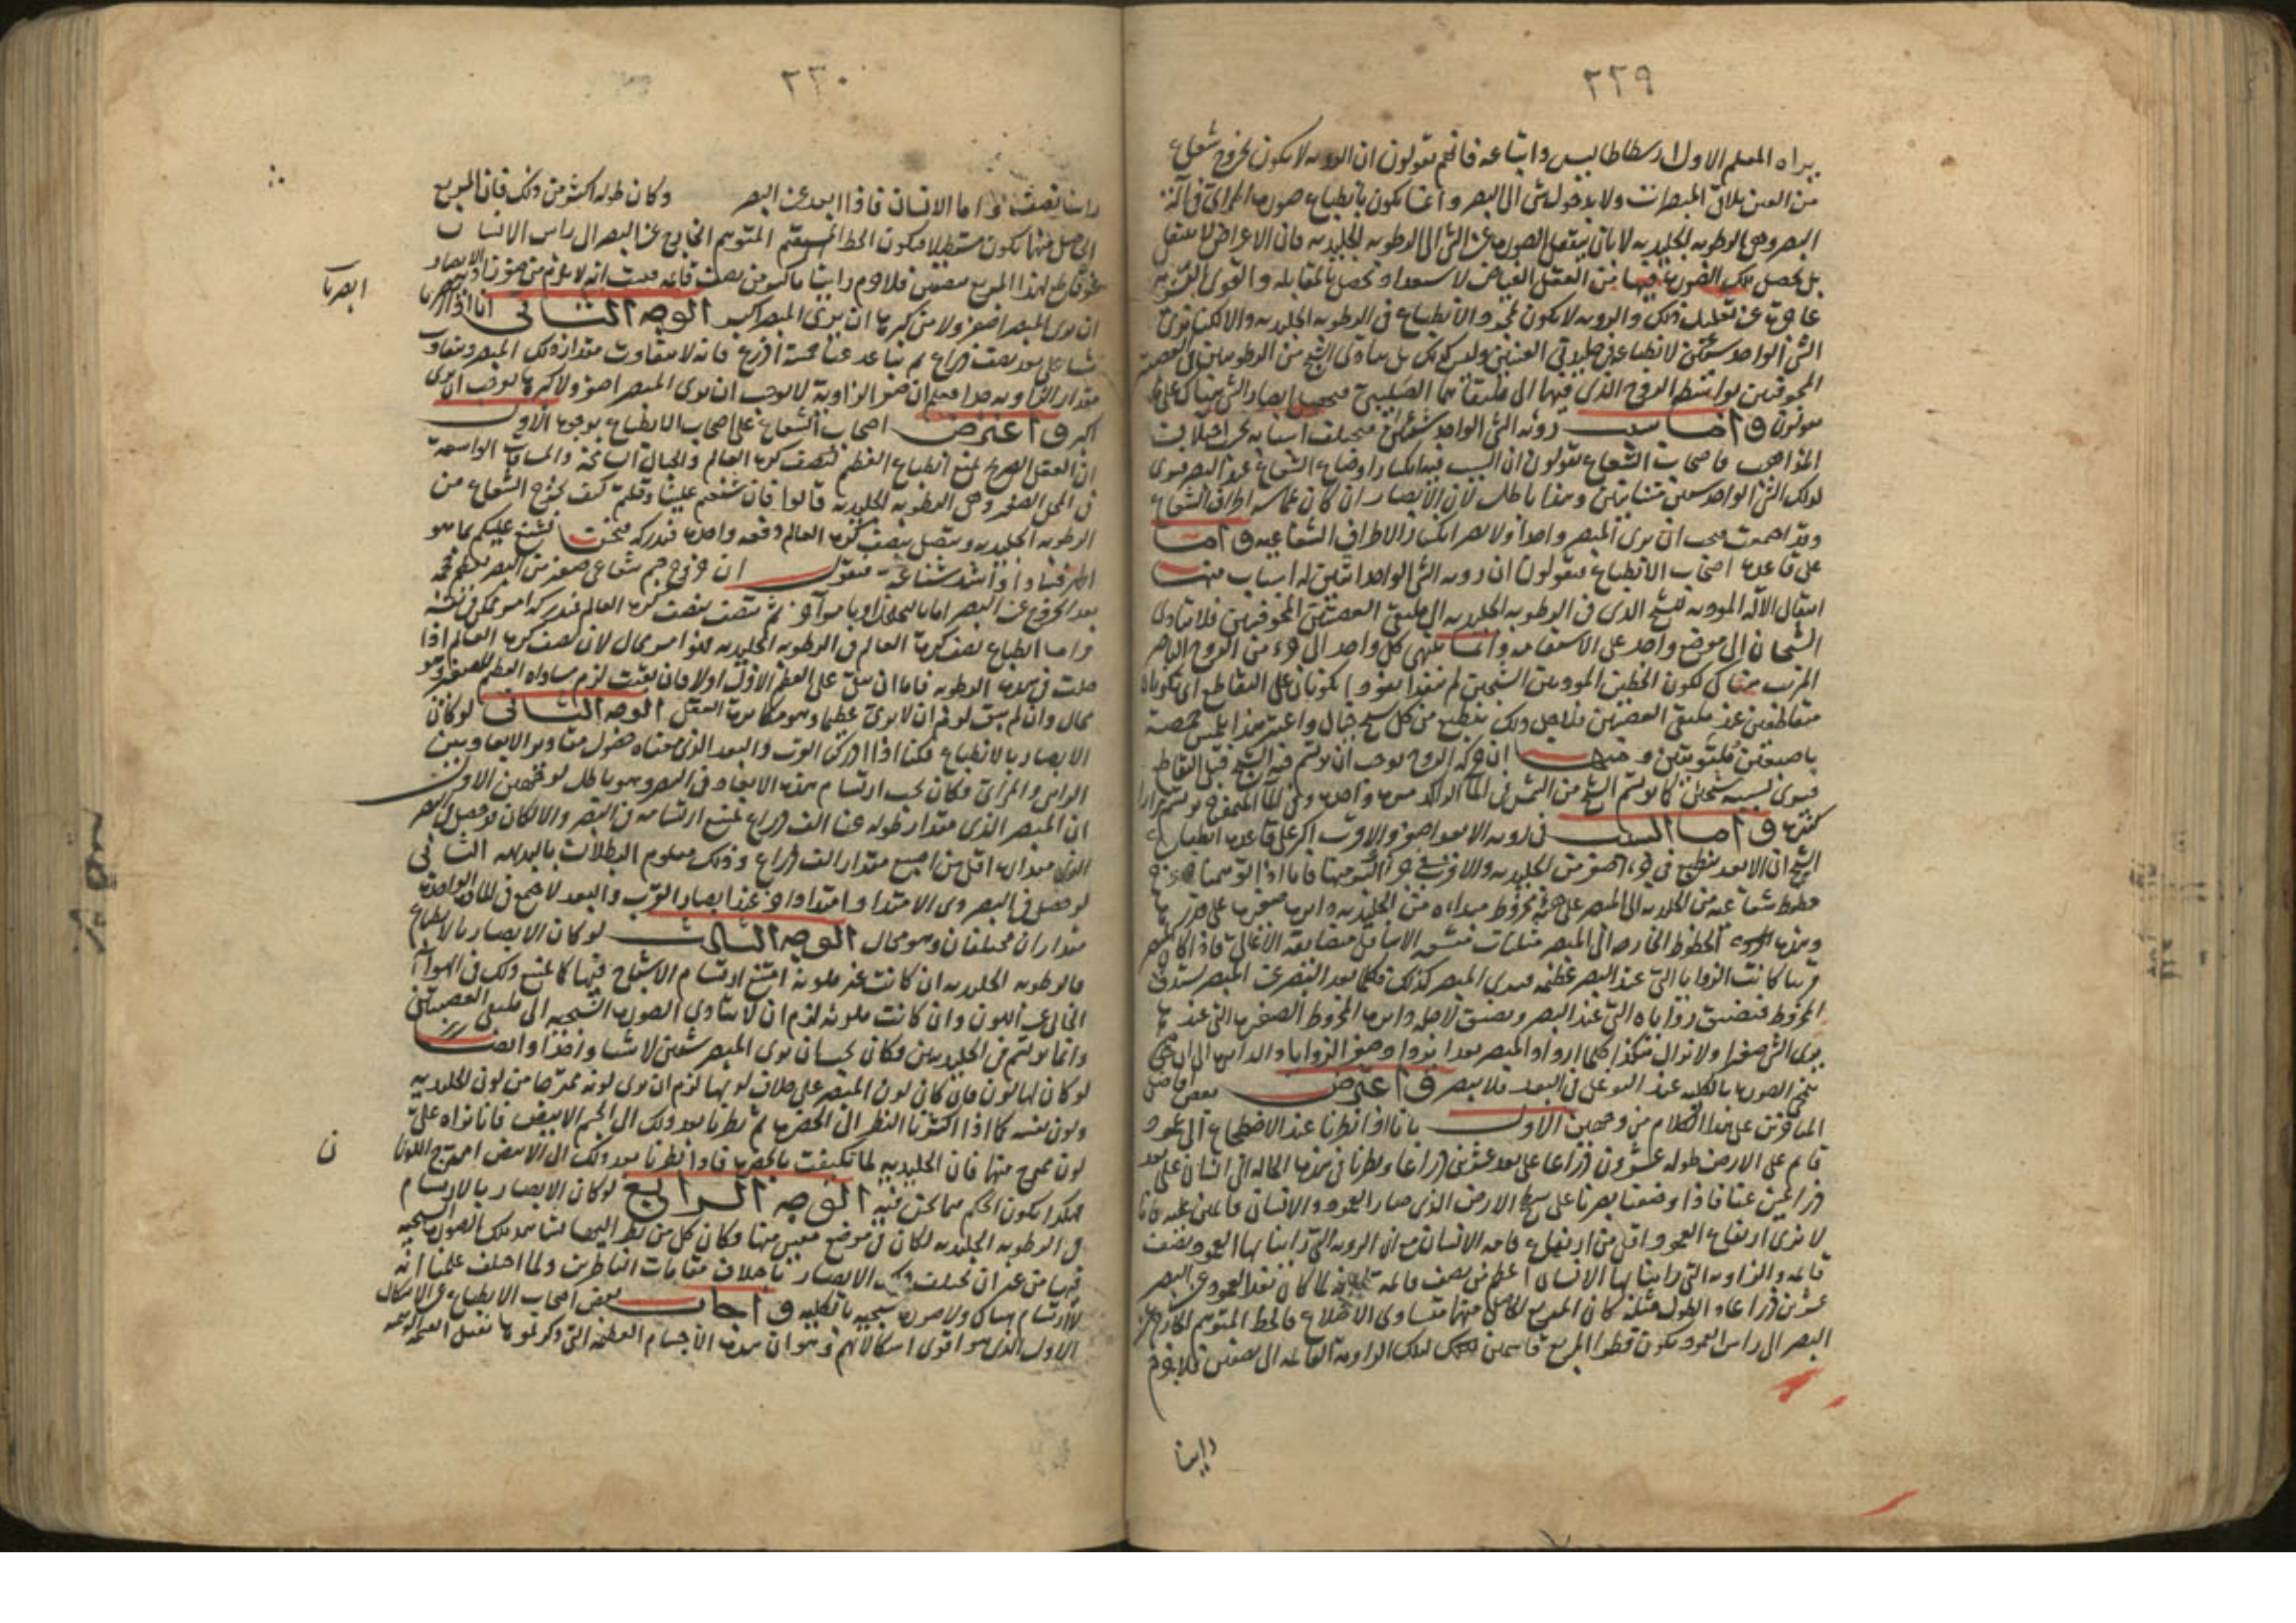 ٢٢٩
يراه المعلم الاول ارسطاطاليس واتباعه فانهم يقولون ان الرويه لا يكون بخروج شعاع
من العين يلاقى المبصرات ولا بدخول شى الى البصر وانما يكون بانطباع صوره المرائى فى آلة
البصر وهى الرطوبه الجليديه لا بان ينتقل الصوره عن الشى الى الرطوبه الجليديه فان الاعراض لا ينتقل
بل يحصل تلك الصوره فيها من العقل الفياض لاستعداد تحصل بالمقابله والقوى البشريه
عاجزة عن تعليل ذلك والرويه لا يكون بمجرد الانطباع فى الرطوبه الجليديه والا لكنا نرى
الشى الواحد شيئين لانطباعه فى جليديتى العينين وليس كذلك بل يتادى الشبح من الرطوبتين فى العصبه
المجوفتين بواسطه الروح الذى فيهما الى ملتقاهما الصليبى ابصار الشى هناك على ما
يقولون واما سبب رؤيه الشى الواحد شيئين فيختلف اسبابه بحسب اختلاف
المذاهب فاصحاب الشعاع يقولون ان السبب فيه انكسار اوضاع الشعاع عند البصر فيرى
لذلك الشى الواحد شيئين متباينين وهذا باطل لان الابصار ان كان مماسه اطراف الشعاع
وقد اجتمعت يجب ان يرى المبصر واحدا ولا يضر انكسار الاطراف الشعاعيه واما
على قاعده اصحاب الانطباع فيقولون ان رويه الشى الواحد اثنين له اسباب منها
انتقال الآله الموديه للشبح الذى فى الرطوبه الجليديه الى ملتقى العصبتين المجوفتين فلا يتادى
الشبحان الى موضع واحد على الاستقامه وانما ينتهى كل واحد الى جزء من الروح الباصر
متقاطعين عند ملتقى العصبتين فلاجل ذلك ينطبع من كل شبح خيال واعتبر هذا بلمس حمصة
باصبعين ملتويتين ومنها ان حركه الروح يوجب ان يرتسم فيه الشبح قبل التقاطع
فيرى نسبته شبحين كما يرتسم الشبح من الشمس فى الما الراكد مره واحده وفى الما المتموج يرتسم مرارا
كثيره واما السبب فى رويه الابعد اصغر والاقرب اكبر على قاعده انطباع
الشبح ان الابعد ينطبع فى جزء اصغر من الجليديه والاقرب فى جزء اكبر منها فانا اذا توهمنا خروج
خطوط شعاعيه من الجليديه الى المبصر على هيئة مخروط مبداءه من الجليديه
قريبا كانت الزوايا التى عند البصر عظيمه فيرى المبصر كذلك فكلما بعد البصر عن المبصر يستدق
المخروط فيضيق زواياه التى عند البصر ويضيق لاجله راس المخروط الصغير التى عندها
يرى الشى صغيرا ولا يزال هكذا كلما ازداد المبصر بعدا يزداد صغر الزوايا
تنمحى الصوره بالكليه عند التوغل فى البعد فلا يبصر واعترض بعض افاضل
المتاخرين على هذا الكلام من وجهين الاول بانا اذا نظرنا عند الاضطجاع الى عمود
قائم على الارض طوله عشرون ذراعا على بعد عشرين ذراعا ونظرنا فى هذه الحاله الى انسان على بعد
ذراعين عنا فاذا وضعنا بصرنا على سطح الارض الذى صار العمود والانسان قائمين عليه فانا
لا نرى ارتفاع العمود اقل من ارتفاع قامه الانسان مع ان الرويه التى راينا بها العمود نصف
قائمه والزاويه التى راينا بها الانسان اعظم من نصف قائمه لما كان بعد العمود عن البصر
عشرين ذراعا والطول مثله كان المربع الحاصل منهما متساوى الاضلاع فالخط المتوهم الخارج عن
البصر الى راس العمود يكون قطر المربع قاسما لتلك الزاويه القائمه الى نصفين فلا جرم
راينا
٢٣٠
راينا نصف واما الانسان فاذا ابعد عن البصر وكان طوله اكثر من ذلك فان المربع
الحاصل منهما يكون مستطيلا فيكون الخط المستقيم المتوهم الخارج عن البصر الى راس الانسان
غير قاطع لهذا المربع بنصفين فلا جرم راينا باكبر من نصف قائمه فثبت انه لا يلزم من صغر زاويه الابصار
ان يرى المبصر اصغر ولا من كبرها ان يرى المبصر اكبر الوجه الثانى انا اذا ابصرنا
ابصرنا
شيا على بعد نصف ذراع ثم تباعد عنا خمسة اذرع فانه لا يتفاوت مقدار ذلك المبصر ويتفاوت
مقدار الزاويه فعلم ان صغر الزاوية لا يوجب ان يرى المبصر اصغر ولا كبرها يوجب ان يرى
اكبر واعترض اصحاب الشعاع على اصحاب الانطباع بوجوه الاول
ان العقل الصريح يمنع انطباع العظيم كنصف كره العالم والجبال الشامخة والمسافات الواسعة
فى المحل الصغير وهى الرطوبه الجليديه قالوا فان شنعتم علينا وقلتم كيف يخرج الشعاع من
الرطوبه الجليديه ويتصل بنصف كره العالم دفعه واحده فيدركه فنحن نشنع عليكم بما هو
اظهر فسادا واشد شناعة فنقول ان خروج جسم شعاعى صغير من البصر
بعد الخروج عن البصر اما بالتخلخل او بامر آخر ثم يتصل بنصف كره العالم فيدركه امر ممكن فى نفسه
واما انطباع نصف كره العالم فى الرطوبه الجليديه فهو امر محال لان نصف كره العالم اذا
حلت فى هذه الرطوبه فاما ان يبقى على العظم الاول اولا فان بقيت لزم مساواه العظيم للصغير وهو
محال وان لم يبق لزم ان لا يرى عظيما وهو مكابره العقل الوجه الثانى لو كان
الابصار بالانطباع فكنا اذا ادركنا القرب والبعد الذى معناه حصول مقادير الابعاد بين
الرائى والمرئى فكان يجب ارتسام هذه الابعاد فى البصر وهو باطل لوجهين الاول
ان المبصر الذى مقدار طوله عنا الف ذراع يمتنع ارتسامه فى البصر والا لكان يحصل فى البصر
الذى مقداره اقل من اصبع مقدار الف ذراع وذلك معلوم البطلان بالبديهه الثانى
لو حصل فى البصر ذى الامتداد امتداد آخر عند ابصار القرب والبعد لاجتمع فى الماده الواحده
مقداران مختلفان وهو محال الوجه الثالث لو كان الابصار بالانطباع
فالرطوبه الجليديه ان كانت غير ملونه امتنع ارتسام الاشباح فيها كما يمتنع ذلك فى الهواء
الخالى عن اللون وان كانت ملونه لزم ان لا يتادى الصوره الشبحيه الى ملتقى العصبتين
وانما يرتسم فى الجليديتين فكان يجب ان يرى المبصر شيئين لا شيا واحدا وايضا
لو كان لها لون فان كان لون المبصر على خلاف لونها لزم ان يرى لونه ممتزجا من لون الجليديه
ولون نفسه كما اذا اكثرنا النظر الى الخضره ثم نظرنا بعد ذلك الى الجسم الابيض فانا نراه على
لون ممتزج منهما فان الجليديه لما تكيفت بالخضره فاذا نظرنا بعد ذلك الى الابيض امتزج اللونان
ن
هكذا يكون الحكم فيما نحن فيه الوجه الرابع لو كان الابصار بالارتسام
فى الرطوبه الجليديه لكان فى موضع معين منها وكان كل من نظر اليها يشاهد تلك الصوره الشبحيه
فيها من غير ان يختلف ذلك الابصار باختلاف مقامات الناظرين ولما اختلف علمنا انه
لا ارتسام هناك ولا صوره شبحيه بالكليه واجاب بعض اصحاب الانطباع عن الاشكال
الاول الذى هو اقوى اشكالاتهم وهو ان هذه الاجسام العظيمه التى ذكرتموها